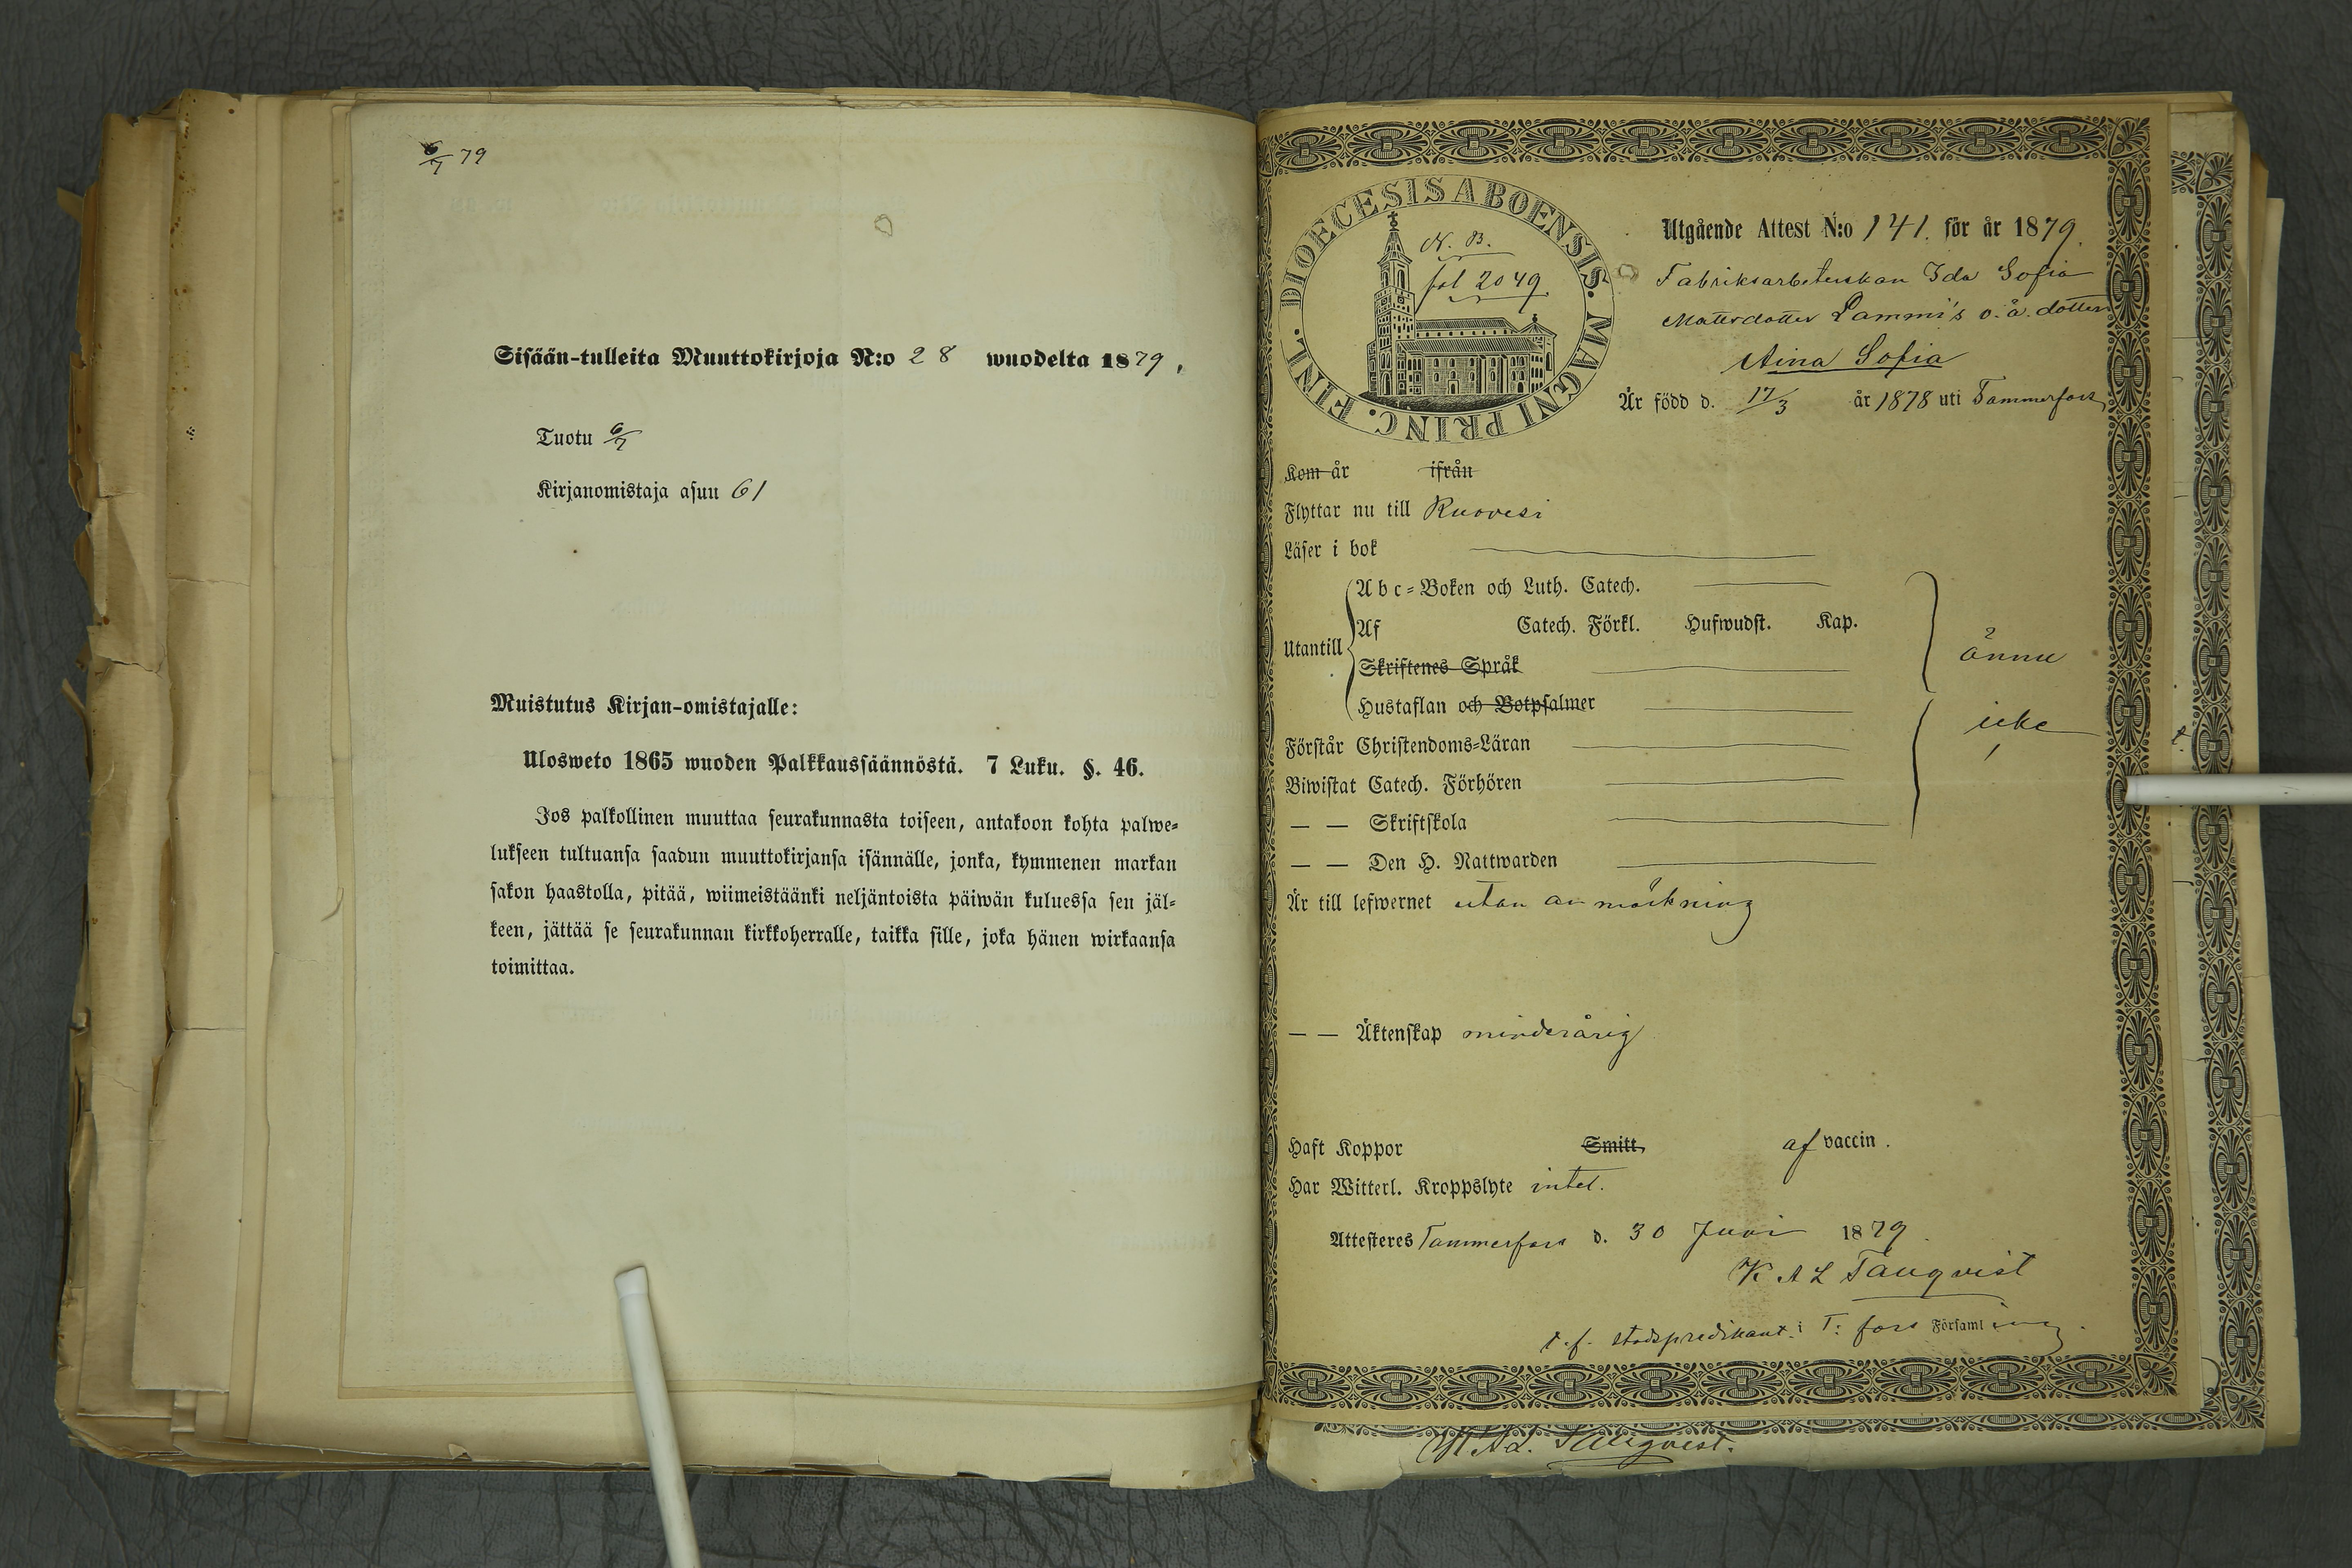 6/7 79
Sisään-tulleita Muuttokirjoja N:o 28 wuodelta 1879,
Tuotu 6/7
Kirjanomistaja asuu 61
Muistutus Kirjan-omistajalle:
Ulosweto 1865 wuoden Palkkaussäännöstä. 7 Luku. §. 46.
Jos palkollinen muuttaa seurakunnasta toiseen, antakoon kohta palwe=
lukseen tultuansa saadun muuttokirjansa isännälle, jonka, kymmenen markan
sakon haastolla, pitää, wiimeistäänki neljäntoista päiwän kuluessa sen jäl=
keen, jättää se seurakunnan kirkkoherralle, taikka sille, joka hänen wirkaansa
toimittaa.
DIOECESIS ABOENSIS. MAGNI PRINC. FINL.
N. B.
fol 2049
Utgående Attest N:o 141. för år 1879.
Fabriksarbeterskan Ida Sofia
Mattsdotter Lammi's o.ä. dotter
Aina Sofia
Är född d. 17/3 år 1878 uti Tammerfors
Kom år ifrån
Flyttar nu till Ruovesi
Läser i bok
Utantill
Abc=Boken och Luth. Catech.
Af Catech. Förkl. Hufwudst. Kap.
Skriftenes Språk
Hustaflan och Botpsalmer
Förstår Christendoms=Läran
Biwistat Catech. Förhören
— — Skriftskola
— — Den H. Nattwarden
ännu
icke
Är till lefwernet utan anmärkning
— — Äktenskap minderårig
Haft Koppor Smitt, af vaccin.
Har Witterl. Kroppslyte intet.
Attesteres Tammerfors d. 30 Juni 1879.
K A L Tauqvist
t.f. stadspredikant. i T:fors Församling.